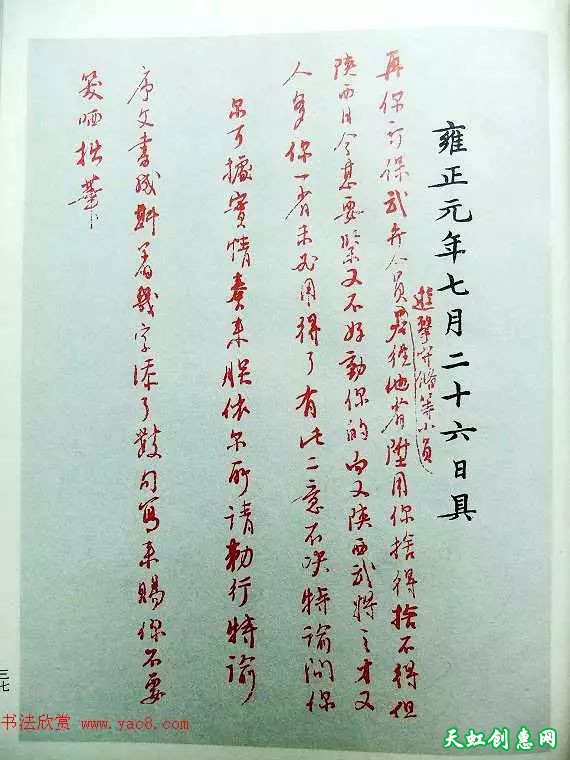 雍正元年七月二十六日具
遊擊守備等小員
再你所保武弁人員若從他省陞用你捨得捨不得但
陝西目今甚要緊又不好動你的向又陝西武將之才又
人多你一省未必用得了有此二意不決特諭問你
尔可據實情奏来朕依尔所請勅行特諭
序文書成斟着幾字添了數句寫来賜你不要
笑哂拙筆
三七
书法欣赏 www.yac8.com
天虹创惠网